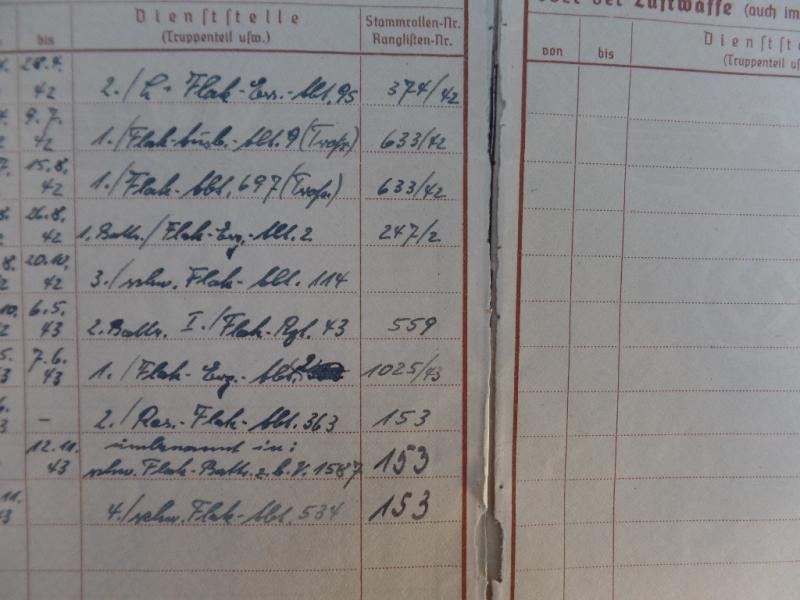 Dienststelle
(Truppenteil usw.)
Stammrollen-Nr.
Ranglisten-Nr.
bis
28.4.
42
2./ Flak- Abt. 95 374/42
9.7.
42
1./Flak- Abt. 9 (Trop.) 633/42
15.8.
42
1./Flak-Abt. 697 (Trop.) 633/42
26.8.
42
1. Battr./Flak-Erg.-Abt. 2 247/2
20.10.
42
3./schw. Flak-Abt. 114
6.5.
43
2. Battr. I./Flak-Rgt. 43 559
7.6.
43
1./Flak-Erg.-Abt. 1025/43
-
2./Res.-Flak-Abt. 363 153
12.11.
43
umbenannt in:
schw. Flak-Battr. z.b.V. 1587 153
4./schw. Flak-Abt. 534 153
oder der Luftwaffe (auch im
von
bis
Dienstst
(Truppenteil us